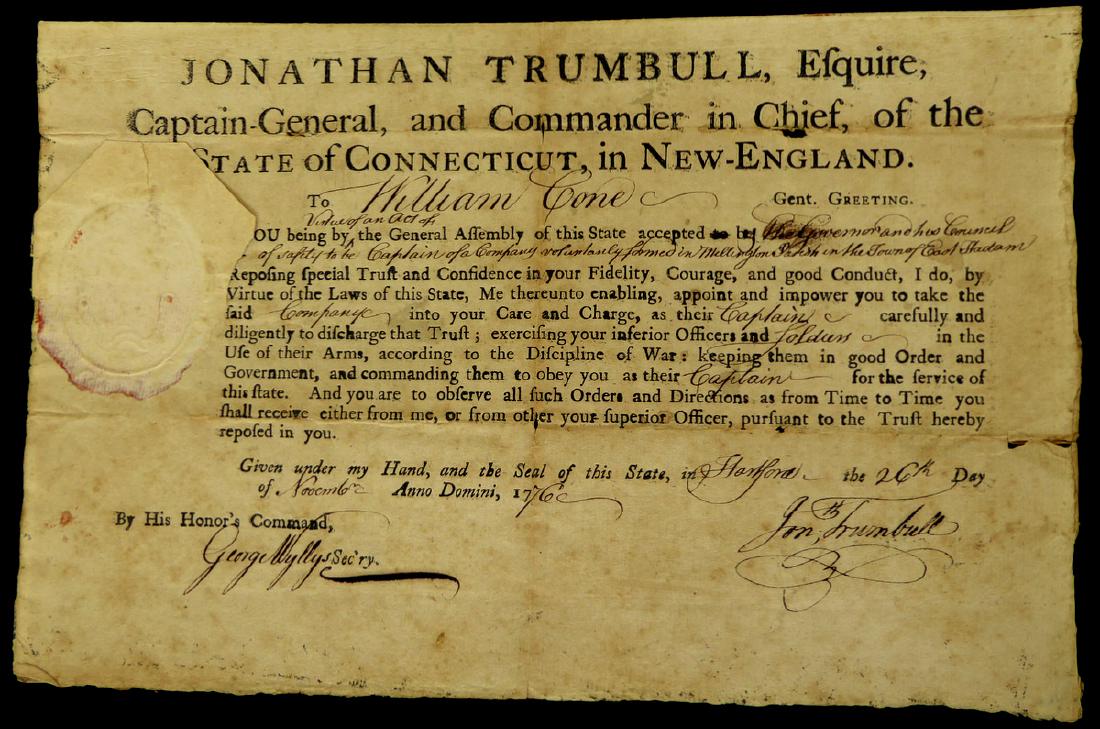 JONATHAN TRUMBULL, Eſquire,
Captain-General, and Commander in Chief, of the
STATE of CONNECTICUT, in NEW-ENGLAND.
To William Cone Gent. GREETING.
Virtue of an Act of
OU being by the General Aſſembly of this State accepted to be the Governor and his Council
of safty to be Captain of a Company voluntarily formed in Millington Parish in the Town of East Haddam
Repoſing ſpecial Truſt and Confidence in your Fidelity, Courage, and good Conduct, I do, by
Virtue of the Laws of this State, Me thereunto enabling, appoint and impower you to take the
ſaid Company into your Care and Charge, as their Captain carefully and
diligently to diſcharge that Truſt; exerciſing your inferior Officers and Soldiers in the
Uſe of their Arms, according to the Diſcipline of War: keeping them in good Order and
Government, and commanding them to obey you as their Captain for the ſervice of
this ſtate. And you are to obſerve all ſuch Orders and Directions as from Time to Time you
ſhall receive either from me, or from other your ſuperior Officer, purſuant to the Truſt hereby
repoſed in you.
Given under my Hand, and the Seal of this State, in Hartford the 26th Day
of Novembr Anno Domini, 1776
By His Honor's Command,
George Wyllys Sec'ry.
Jonth Trumbull